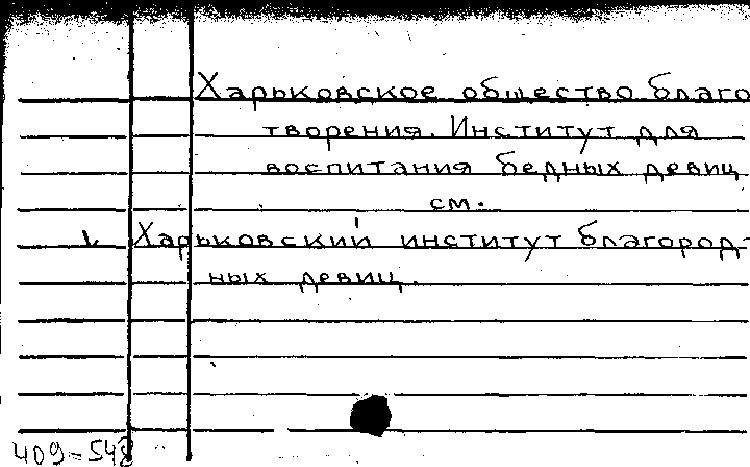 Харьковское общество благо
творения. Институт для
воспитания бедных девиц
см.
1. Харьковский институт благород-
ных девиц.
409-548